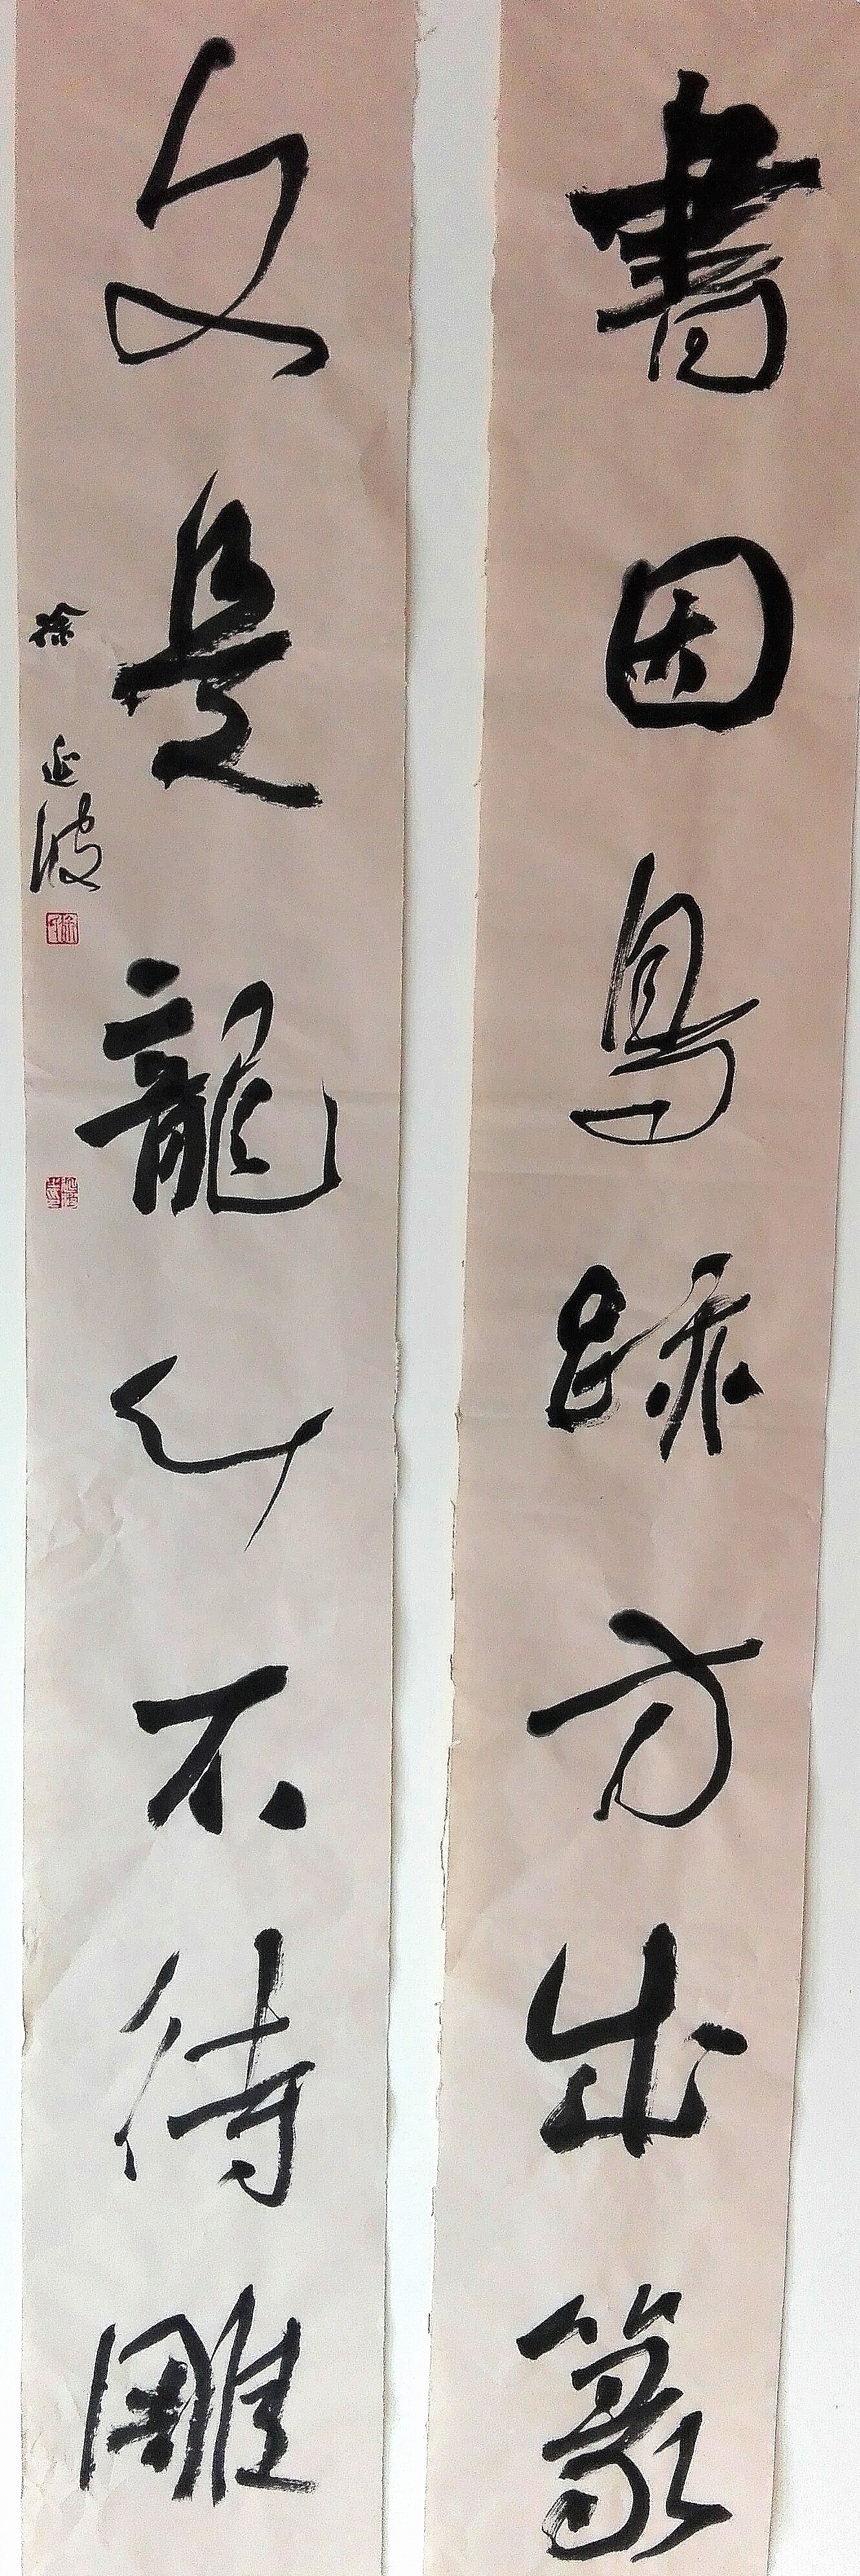 書因鳥跡方出篆
文是龍心不待雕
徐延波